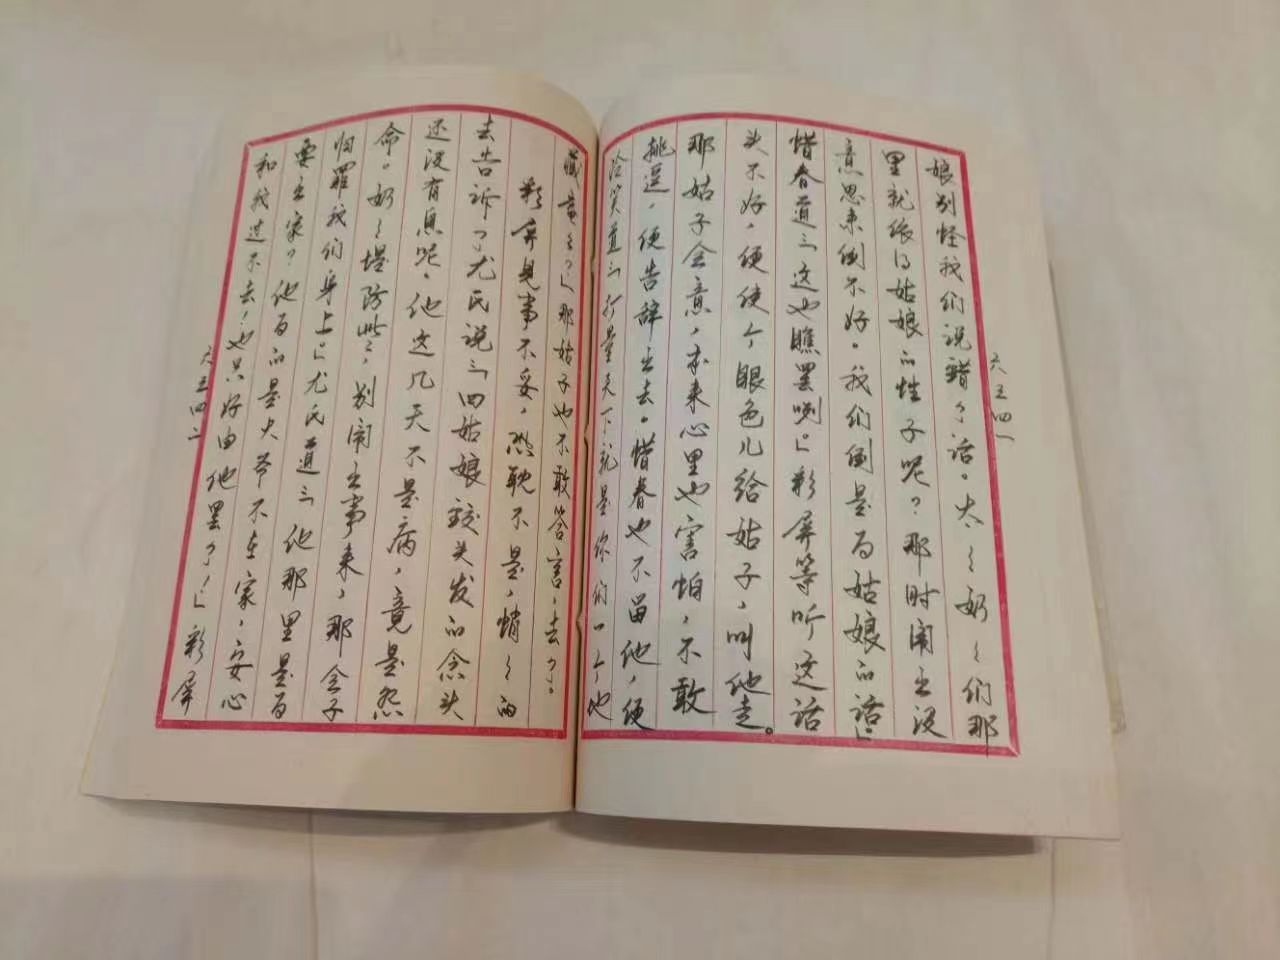 娘别怪我们说错了话。太々奶々们那
里就依得姑娘的性子呢？那时闹出没
意思来倒不好。我们倒是为姑娘的话」
惜春道:「这也瞧罢咧」彩屏等听这话
头不好，便使个眼色儿给姑子，叫他走。
那姑子会意，本来心里也害怕，不敢
挑逗，便告辞出去。惜春也不留他，便
冷笑道:「打量天下就是你们一个地
六五四一
藏庵么?」那姑子也不敢答言，去了。
彩屏见事不妥，恐耽不是，悄々的
去告诉了尤氏说:「四姑娘铰头发的念头
还没有息呢。他这几天不是病，竟是怨
命。奶々堤防些，别闹出事来，那会子
归罪我们身上。」尤氏道:「他那里是为
要出家？他为的是大爷不在家，安心
和我过不去！也只好由他罢了！」彩屏
六五四二